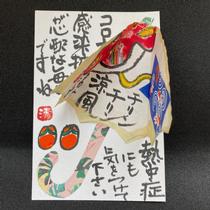 コロナ
感染拡
が心配な毎日
ですね
チリン
チリン
涼風
熱中症
にも
気をつけて
下さい